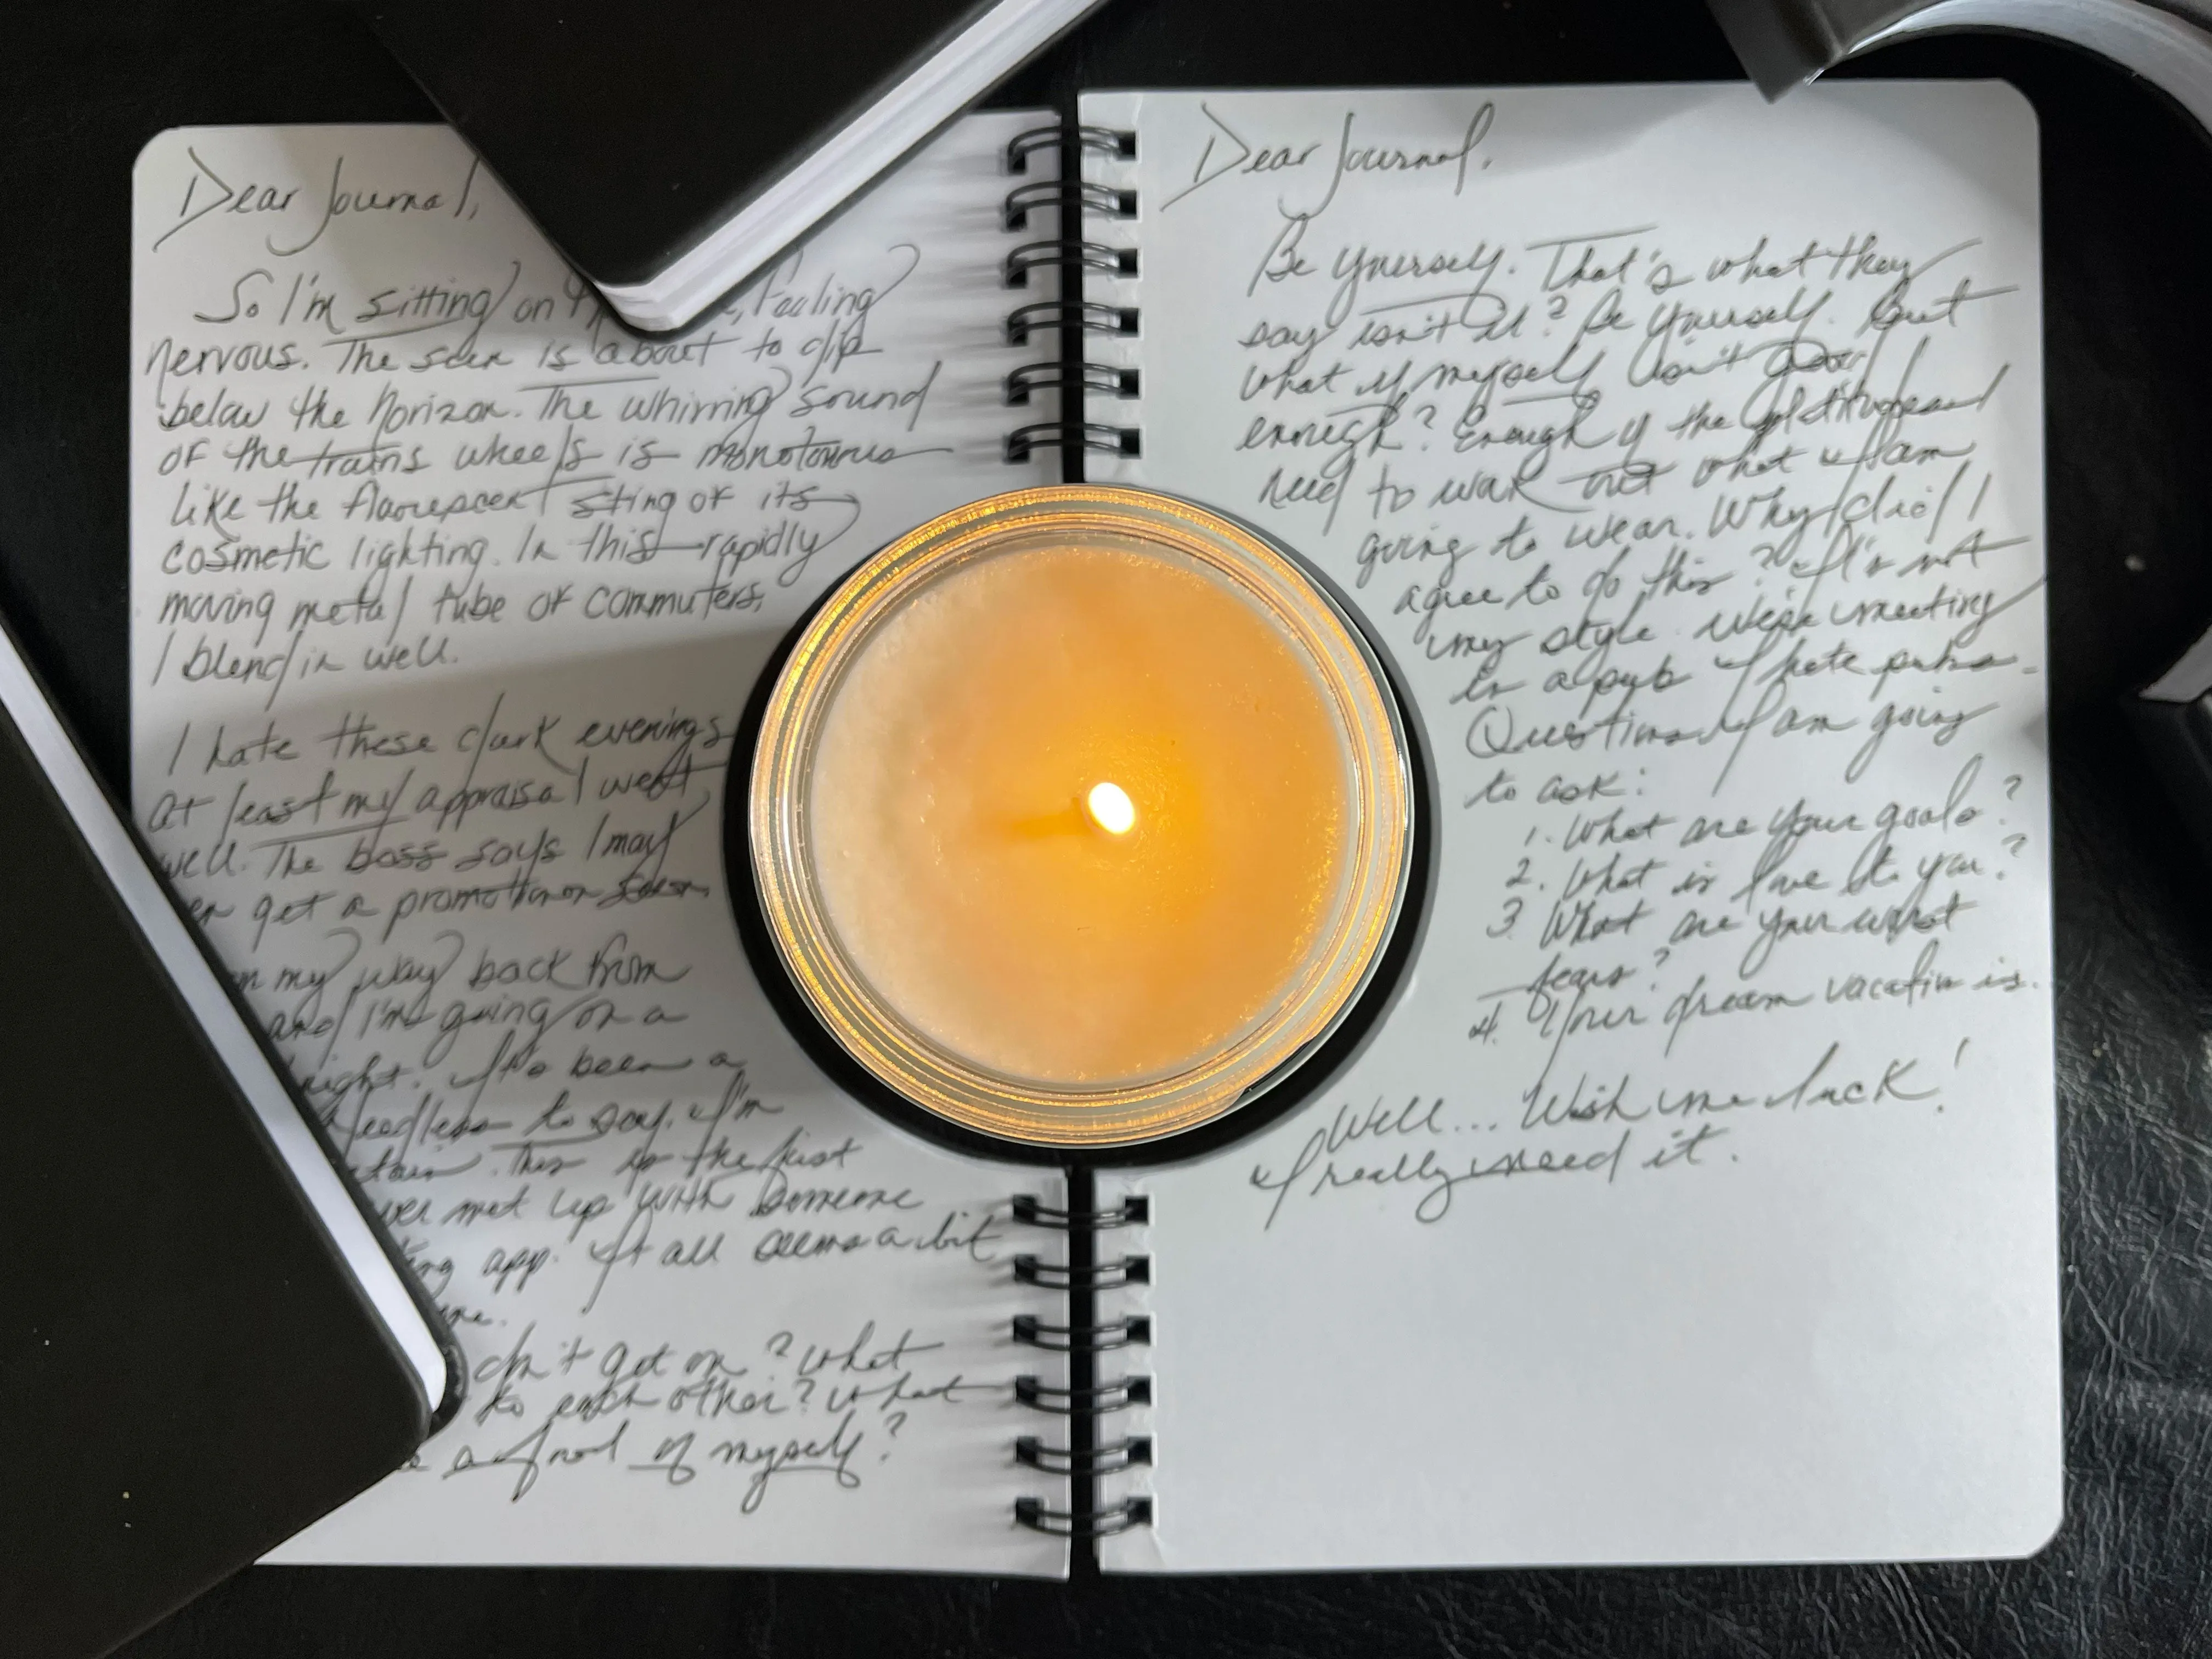 Dear Journal,
So I'm sitting on feeling
nervous. The sun is about to dip
below the horizon. The whirring sound
of the trains wheels is monotonous
like the sting of its
cosmetic lighting. In this rapidly
moving metal tube of commuters,
I blend in well.
I hate these dark evenings
At least my appraisal went
well. The boss says I may
get a promotion soon.
my way back from
and I'm going on a
It's been a
Needless to say, I'm
This is the first
met up with someone
app. It all seems a bit
don't get on? What
to each other? What
a fool of myself?
Dear Journal,
Be yourself. That's what they
say isn't it? Be yourself. But
what if myself isn't good
enough? Enough of the
need to work out what I am
going to wear. Why did I
agree to do this? It's not
my style. We're meeting
in a pub I hate pubs.
Questions I am going
to ask:
1. What are your goals?
2. What is love to you?
3. What are your worst
fears?
4. Your dream vacation is.
Well... Wish me luck!
I really need it.